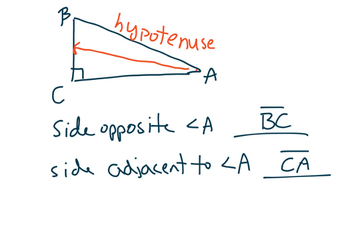 B
hypotenuse
A
C
side opposite <A B̅C̅
side adjacent to <A C̅A̅